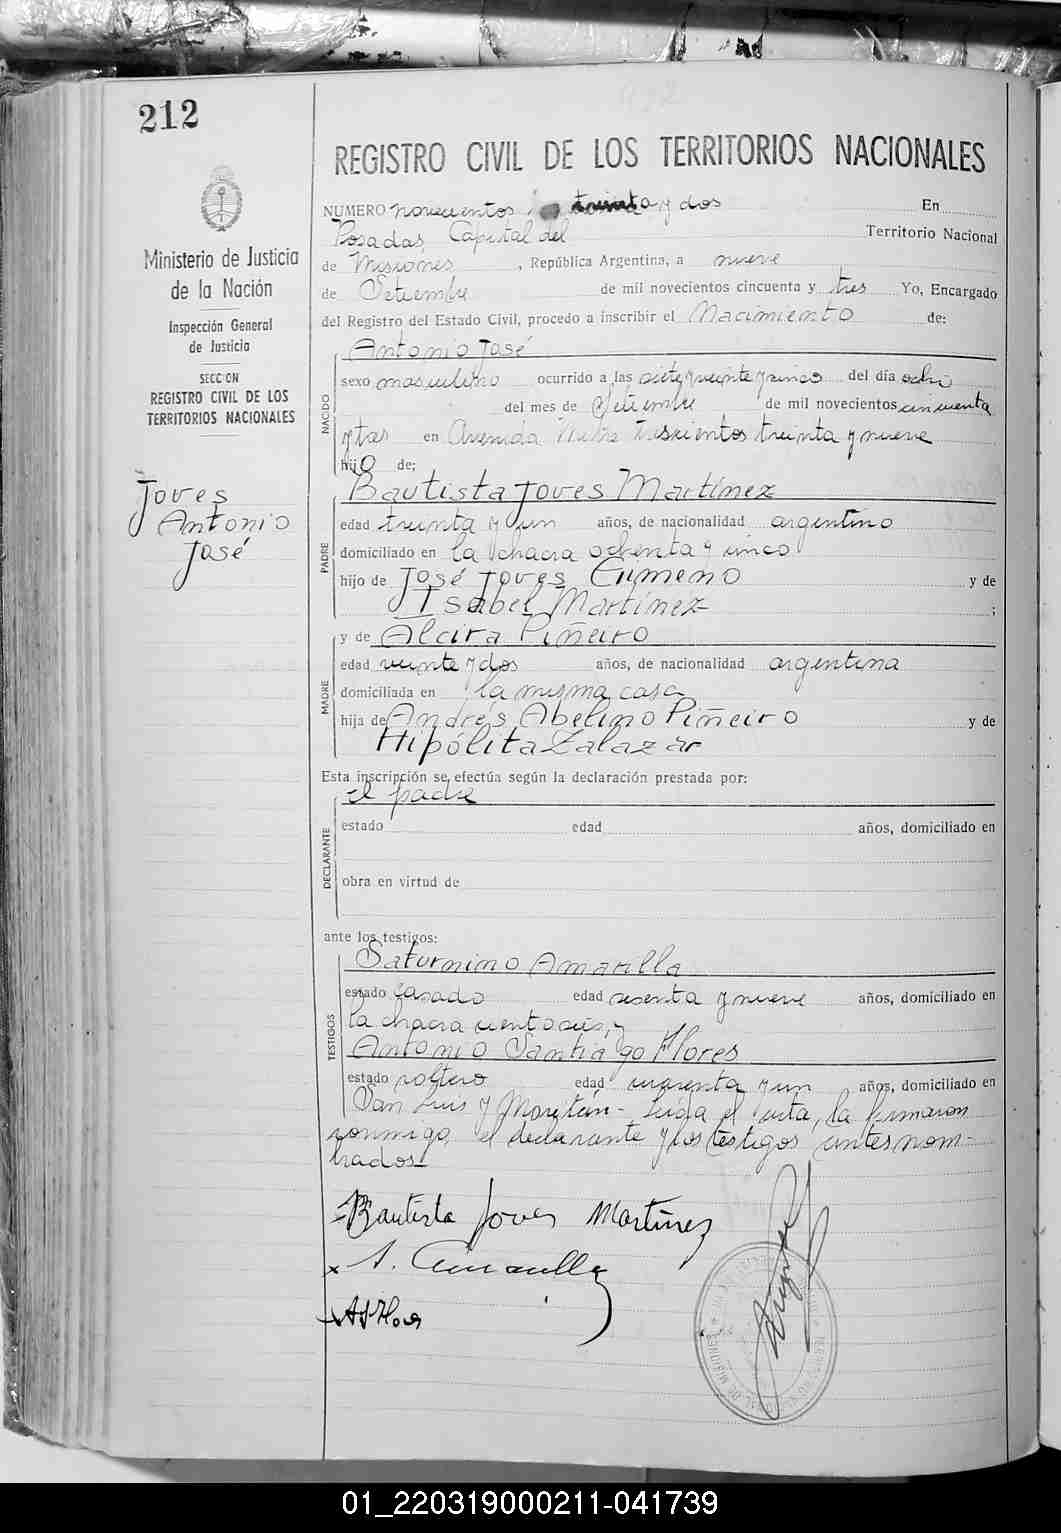 212
REGISTRO CIVIL DE LOS TERRITORIOS NACIONALES
Ministerio de Justicia
de la Nación
Inspección General
de Justicia
SECCION
REGISTRO CIVIL DE LOS
TERRITORIOS NACIONALES
Joves
Antonio
José
NUMERO novecientos treinta y dos En
Posadas, Capital del Territorio Nacional
de Misiones, República Argentina, a nueve
de Setiembre de mil novecientos cincuenta y tres Yo, Encargado
del Registro del Estado Civil, procedo a inscribir el Nacimiento de:
NACIDO
Antonio José
sexo masculino ocurrido a las siete y veinte y cinco del día ocho
del mes de Setiembre de mil novecientos cincuenta
y tres en Avenida Mitre trescientos treinta y nueve
hijo de;
PADRE
Bautista Joves Martínez
edad treinta y un años, de nacionalidad argentino
domiciliado en la chacra ochenta y cinco
hijo de José Joves Gimeno y de
Isabel Martínez ;
MADRE
y de Alcira Piñeiro
edad veinte y dos años, de nacionalidad argentina
domiciliada en la misma casa
hija de Andrés Abelino Piñeiro y de
Hipólita Zalazar
Esta inscripción se efectúa según la declaración prestada por:
DECLARANTE
el padre
estado edad años, domiciliado en
obra en virtud de
ante los testigos:
TESTIGOS
Saturnino Amarilla
estado casado edad sesenta y nueve años, domiciliado en
la chacra ciento seis, y
Antonio Santiago Flores
estado soltero edad cuarenta y un años, domiciliado en
San Luis y Moritán - Leída el acta, la firmaron
conmigo, el declarante y los testigos antes nom-
brados.-
Bautista Joves Martínez
A. Amarilla
ASFlores
01_220319000211-041739